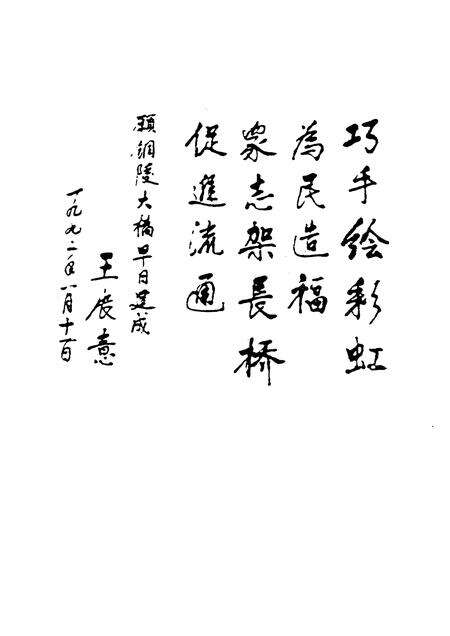 巧手绘彩虹
為民造福
众志架長桥
促進流通
願銅陵大橋早日建成
王展意
一九九二年八月十一日